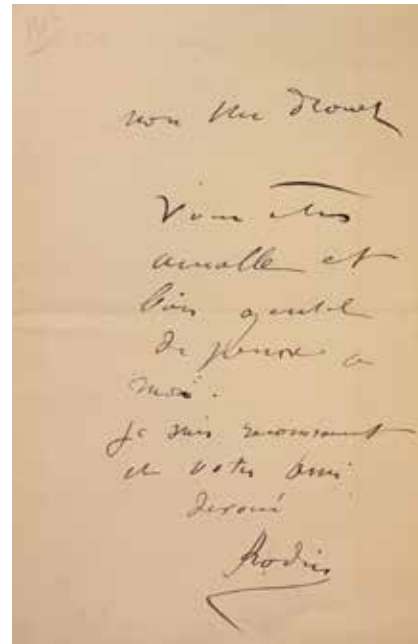 mon cher Drouet
Vous êtes
aimable et
bien gentil
de penser a
moi.
Je suis reconnaissant
et votre ami
devoué
Rodin